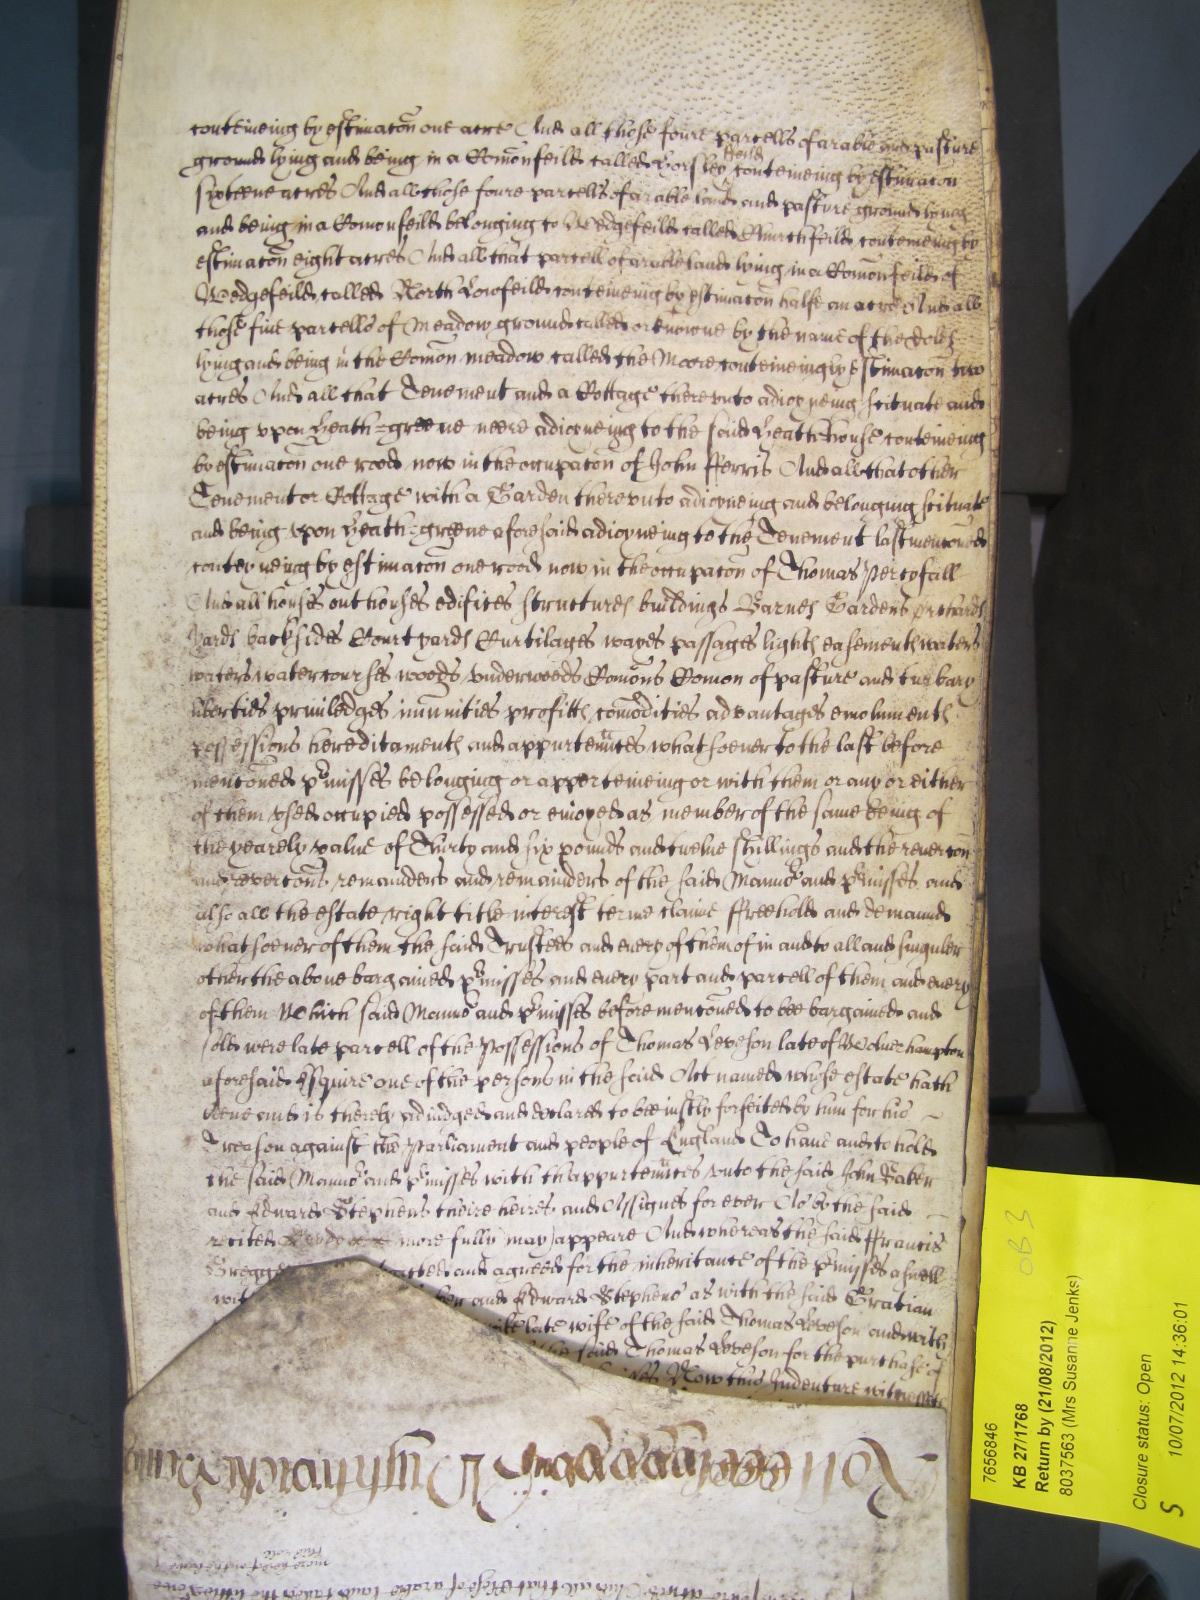 conteineing by estimacon one acre And all those foure parcells of arable and pasture
ground lying and being in a Comonfeild called Horsley feild conteineing by estimacon
sixteene acres And all those foure parcells of arable land and pasture ground lying
and being in a Comonfeild belonging to Wedgefeild called Churchfeild conteineing by
estimacon eight acres And all that parcell of arable land lying in a Comonfeild of
Wedgefeild called North Lowfeild conteineing by estimacon halfe an acre And all
those five parcells of Meadow ground called or knowne by the name of the doles
lying and being in the Comon meadow called the Moore conteineing by estimacon two
acres And all that Tenement and a Cottage therevnto adioyneing scituate and
being vpon Heath=greene neere adioyneing to the said Heath house conteineing
by estimacon one rood now in the occupacon of John Fferris And all that other
Tenement or Cottage with a Garden therevnto adioyneing and belonging scituate
and being vpon Heath=greene aforesaid adioyneing to the Tenement last mencioned
conteyneing by estimacon one rood now in the occupacon of Thomas Percyfall
And all houses outhouses edifices structures buildings Barnes Gardens Orchards
Yards backsides Courtyards Curtilages wayes passages lights easements waters
watercourses woods vnderwoods Comons Comon of pasture and turbary
liberties priuiledges imunities profitts comodities advantages emoluments
possessions hereditaments and appurtennces whatsoeuer to the last before
mencioned pmisses belonging or apperteineing or with them or any or either
of them vsed occupied possessed or enioyed as member of the same being of
the yearely value of Thirty and six pounds and twelue shillings and the reuercon
and revercons remainder and remainders of the said Mannor and pmisses and
also all the estate right title interest terme claime ffreehold and demaund
whatsoeuer of them the said Trustees and euery of them of in and to all and singuler
other the aboue bargained pmisses and euery part and parcell of them and euery
of them Which said Mannor and pmisses before mencioned to bee bargained and
sold were late parcell of the Possessions of Thomas Leveson late of Woluerhampton
aforesaid Esquire one of the persons in the said Act named whose estate hath
beene and is thereby adiudged and declared to bee iustly forfeited by him for his
Treason against the Parliament and people of England To haue and to hold
the said Mannor and pmisses with thappurtennces vnto the said John Baker
and Edward Stephens theire heires and Assignes for ever As by the said
recited more fully may appeare And whereas the said Ffrancis
Gregge acted and agreed for the inheritance of the pmisses aswell
wit ker and Edward Stephens as with the said Gratian
late wife of the said Thomas Leveson and with
the said Thomas Leveson for the purchase of
Now this Indenture witnesseth
7656846
KB 27/1768
Return by (21/08/2012)
8037563 (Mrs Susanne Jenks)
Closure status: Open
S 10/07/2012 14:36:01
OB 3